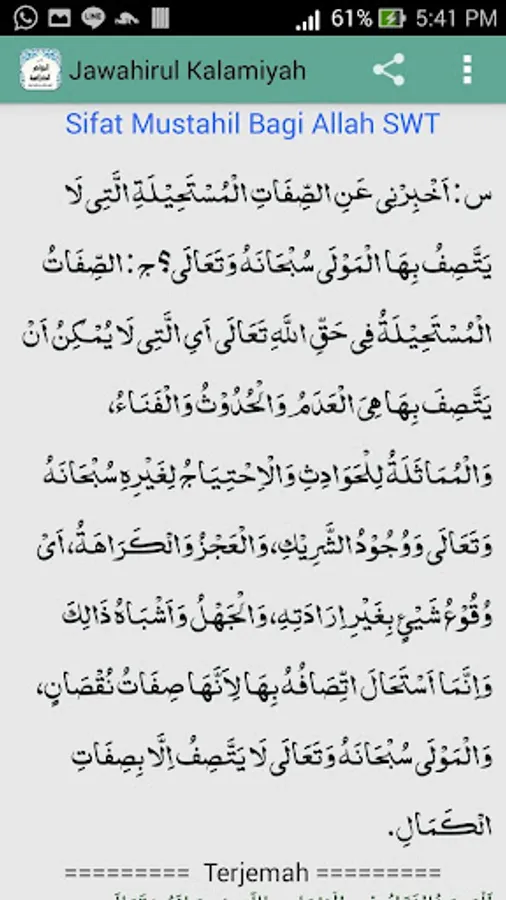 61% 5:41 PM
Jawahirul Kalamiyah
Sifat Mustahil Bagi Allah SWT
س : اَخْبِرْنِى عَنِ الصِّفَاتِ الْمُسْتَحِيْلَةِ الَّتِى لَا
يَتَّصِفُ بِهَا الْمَوْلَى سُبْحَانَهُ وَتَعَالَى؟ ج : الصِّفَاتُ
الْمُسْتَحِيْلَةُ فِى حَقِّ اللَّهِ تَعَالَى اَيِ الَّتِى لَا يُمْكِنُ اَنْ
يَتَّصِفَ بِهَا هِيَ الْعَدَمُ وَالْحُدُوْثُ وَالْفَنَاءُ،
وَالْمُمَاثَلَةُ لِلْحَوَادِثِ وَالْاِحْتِيَاجُ لِغَيْرِهِ سُبْحَانَهُ
وَتَعَالَى وَوُجُوْدُ الشَّرِيْكِ، وَالْعَجْزُ وَالْكَرَاهَةُ، اَيْ
وُقُوْعُ شَيْئٍ بِغَيْرِ اِرَادَتِهِ، وَالْجَهْلُ وَاَشْبَاهُ ذَالِكَ
وَاِنَّمَا اَسْتَحَالَ اتِّصَافُهُ بِهَا لِاَنَّهَا صِفَاتُ نُقْصَانٍ،
وَالْمَوْلَى سُبْحَانَهُ وَتَعَالَى لَا يَتَّصِفُ اِلَّا بِصِفَاتِ
الْكَمَالِ.
========= Terjemah =========